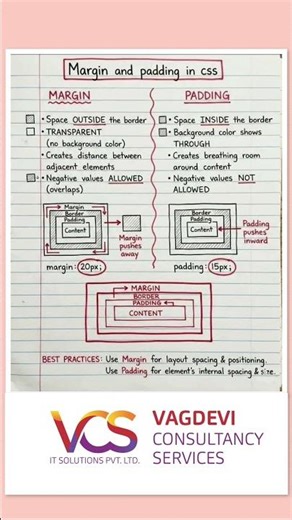 Margin and padding in css
MARGIN
Space OUTSIDE the border
TRANSPARENT
(no background color)
Creates distance between
adjacent elements
Negative values ALLOWED
(overlaps)
Margin
Border
Padding
Content
Margin
pushes
away
margin: 20px;
PADDING
Space INSIDE the border
Background color shows
THROUGH
Creates breathing room
around content
Negative values NOT
ALLOWED
Border
Padding
Content
Padding
pushes
inward
padding: 15px;
MARGIN
BORDER
PADDING
CONTENT
BEST PRACTICES: Use Margin for layout spacing & positioning.
Use Padding for element's internal spacing & size.
VCS
IT SOLUTIONS PVT. LTD.
VAGDEVI
CONSULTANCY
SERVICES